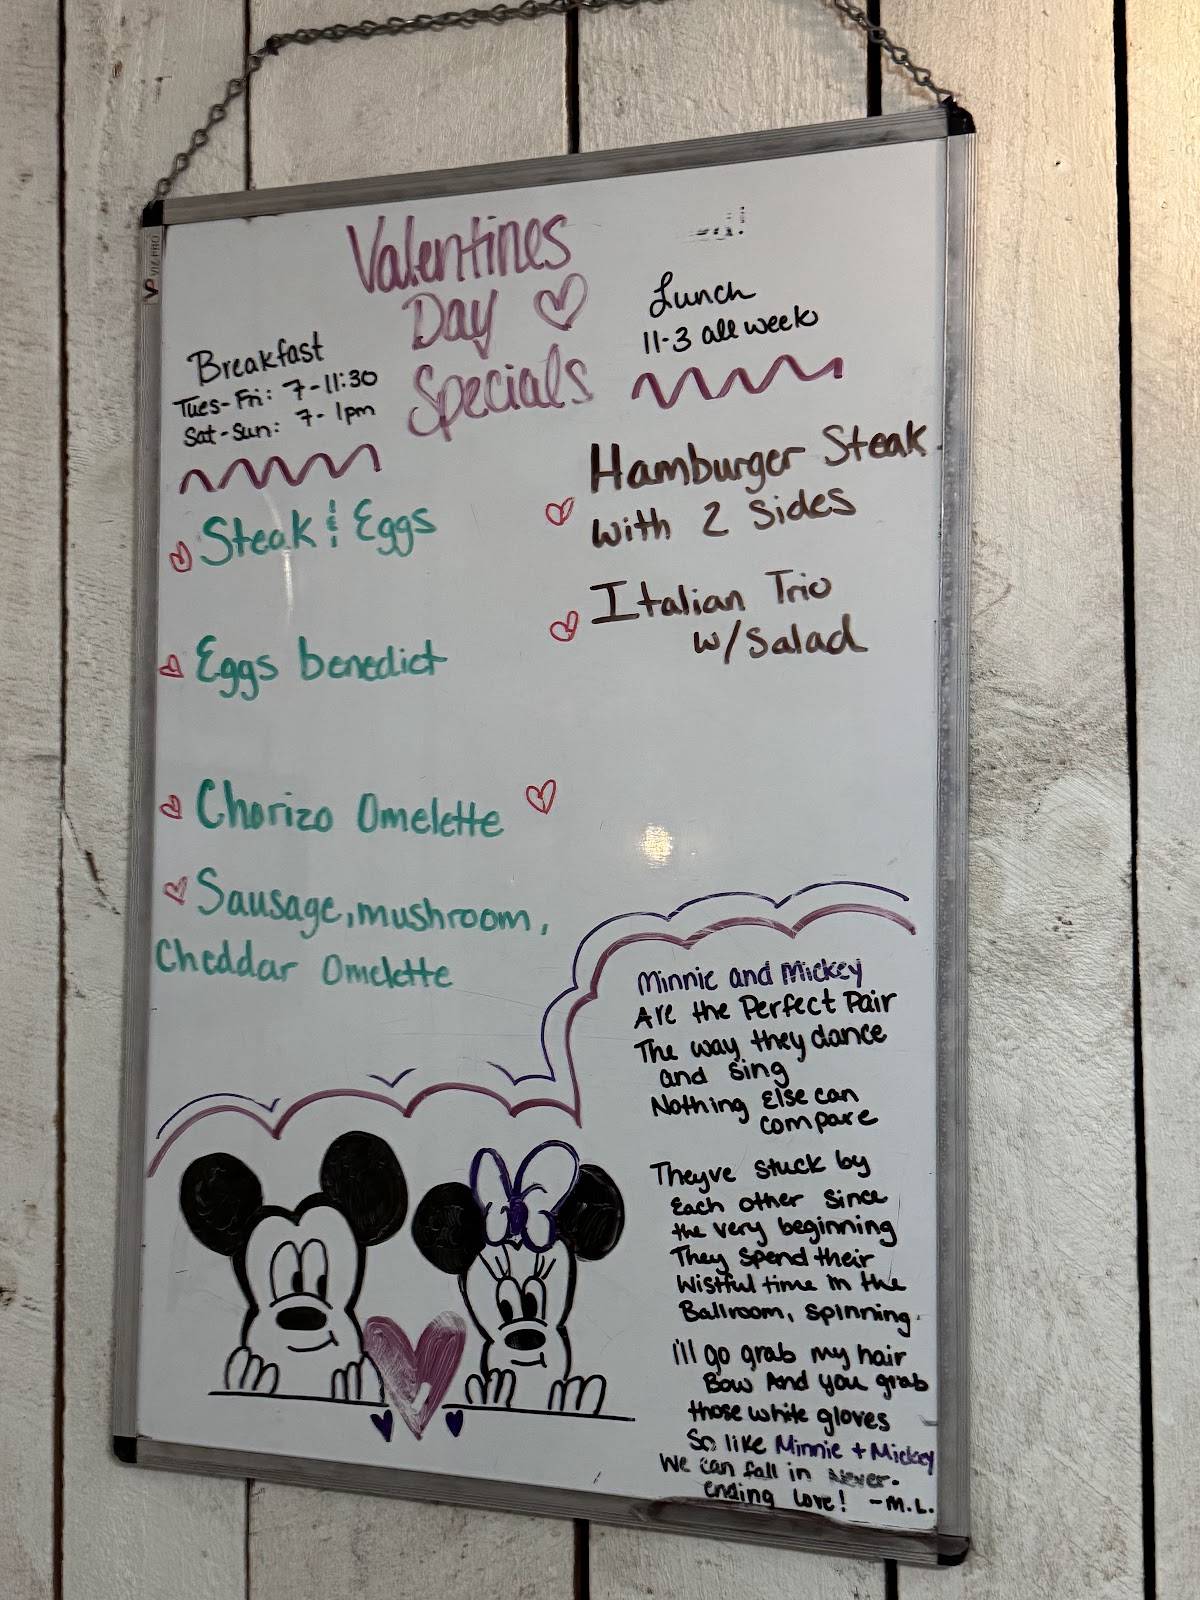 VIZ-PRO
Valentines
Day
Specials
Breakfast
Tues-Fri: 7-11:30
Sat-Sun: 7-1pm
Steak & Eggs
Eggs benedict
Chorizo Omelette
Sausage, mushroom,
Cheddar Omelette
Lunch
11-3 all week
Hamburger Steak
with 2 sides
Italian Trio
w/Salad
Minnie and Mickey
Are the Perfect Pair
The way they dance
and sing
Nothing Else can
compare
Theyve stuck by
Each other since
the very beginning
They spend their
Wistful time in the
Ballroom, spinning.
i'll go grab my hair
Bow And you grab
those white gloves
So like Minnie + Mickey
We can fall in Never-
ending love! -M.L.